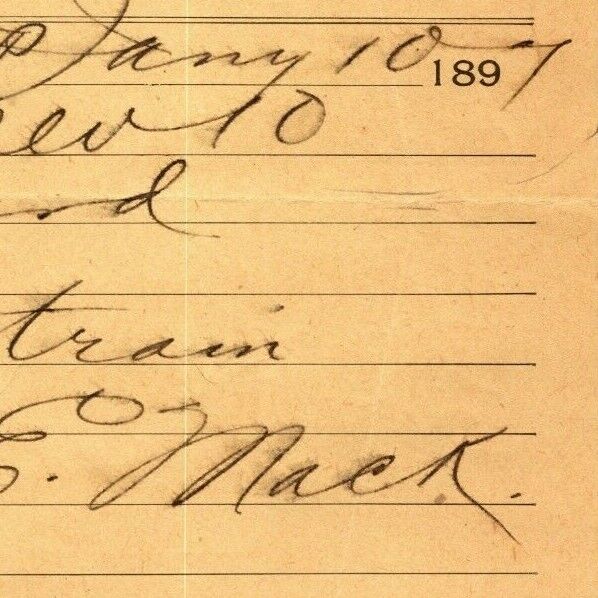 Jany 10 1897
10
train
E. Mack.